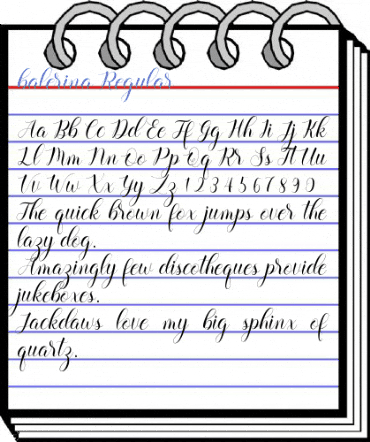 balerina Regular
Aa Bb Cc Dd Ee Ff Gg Hh Ii Jj Kk
Ll Mm Nn Oo Pp Qq Rr Ss Tt Uu
Vv Ww Xx Yy Zz 1 2 3 4 5 6 7 8 9 0
The quick brown fox jumps over the
lazy dog.
Amazingly few discotheques provide
jukeboxes.
Jackdaws love my big sphinx of
quartz.